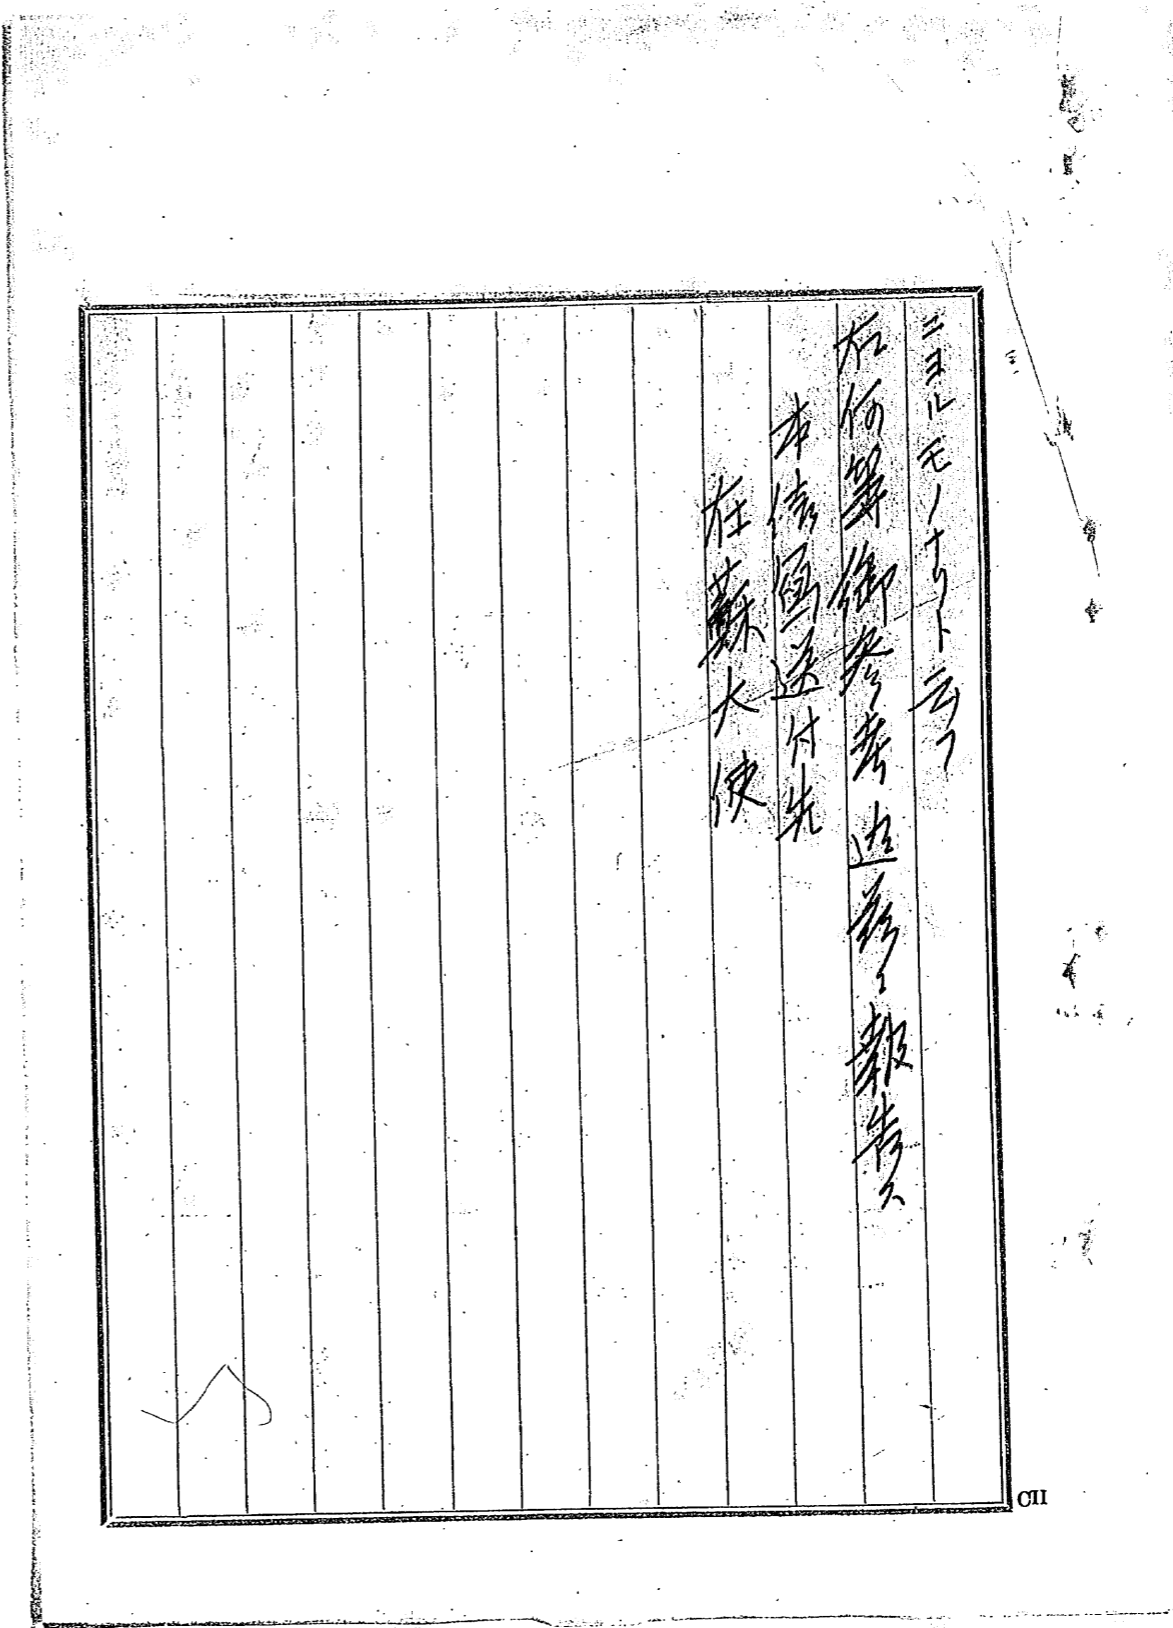 ニヨルモノナリト云フ
右何等御参考迄茲ニ報告ス
本信写送付先
在蘇大使
CII